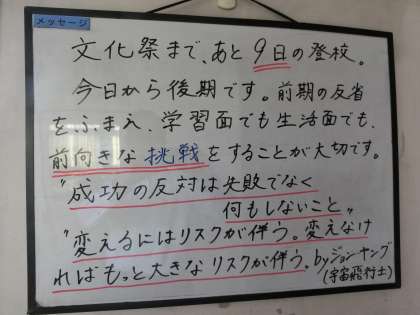 メッセージ
文化祭まで、あと9日の登校。
今日から後期です。前期の反省
をふまえ、学習面でも生活面でも、
前向きな挑戦をすることが大切です。
"成功の反対は失敗でなく
何もしないこと"
"変えるにはリスクが伴う。変えなけ
ればもっと大きなリスクが伴う。byジョン・ヤング
(宇宙飛行士)